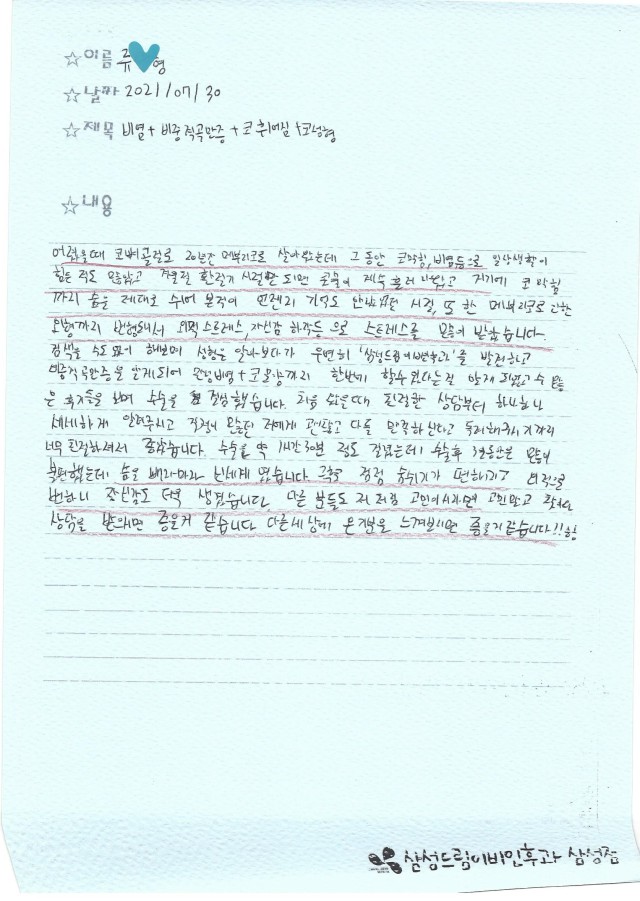 ☆이름 류♥영
☆날짜 2021/07/30
☆제목 비염+비중격곡만증+코 휘어짐+코성형
☆내용
어렸을때 코뼈골절로 20년간 메부리코로 살아왔는데 그 동안 코막힘, 비염등으로 일상생활이
힘든 적도 많았고 계절 환절기 시절만 되면 콧물이 계속 흘러 나왔고 거기에 코 막힘
까지 숨을 제대로 쉬어 본적이 언젠지 기억도 안났었던 시절, 또 한 메부리코로 인한
모형까지 변형돼서 외적 스트레스, 자신감 하락등 으로 스트레스를 많이 받았습니다.
검색을 수도 없이 해보며 성형을 알아보다가 우연히 '삼성드림이비인후과'를 발견하고
비중격만곡증을 알게되어 만성비염+코모양까지 한번에 할수있다는걸 알게 되었고 수 많
은 후기들을 보며 수술을 결심했습니다. 처음 왔을때 친절한 상담부터 하나하나
세세하게 알려주시고 걱정이 많았던 저에게 괜찮고 다들 만족하신다고 독려해주시기까지
너무 친절하셔서 좋았습니다. 수술은 약 1시간30분 정도 걸렸는데 수술후 3일동안은 많이
불편했는데 솜을 빼자마자 신세계 였습니다. 그후로 점점 숨쉬기가 편해지고 외적으로
변하니 자신감도 더욱 생겼습니다. 다른 분들도 저 처럼 고민이시라면 고민말고
상담을 받으시면 좋을거 같습니다 다른세상에 온기분을 느껴보시면 좋을거 같습니다!!
삼성드림이비인후과 삼성점